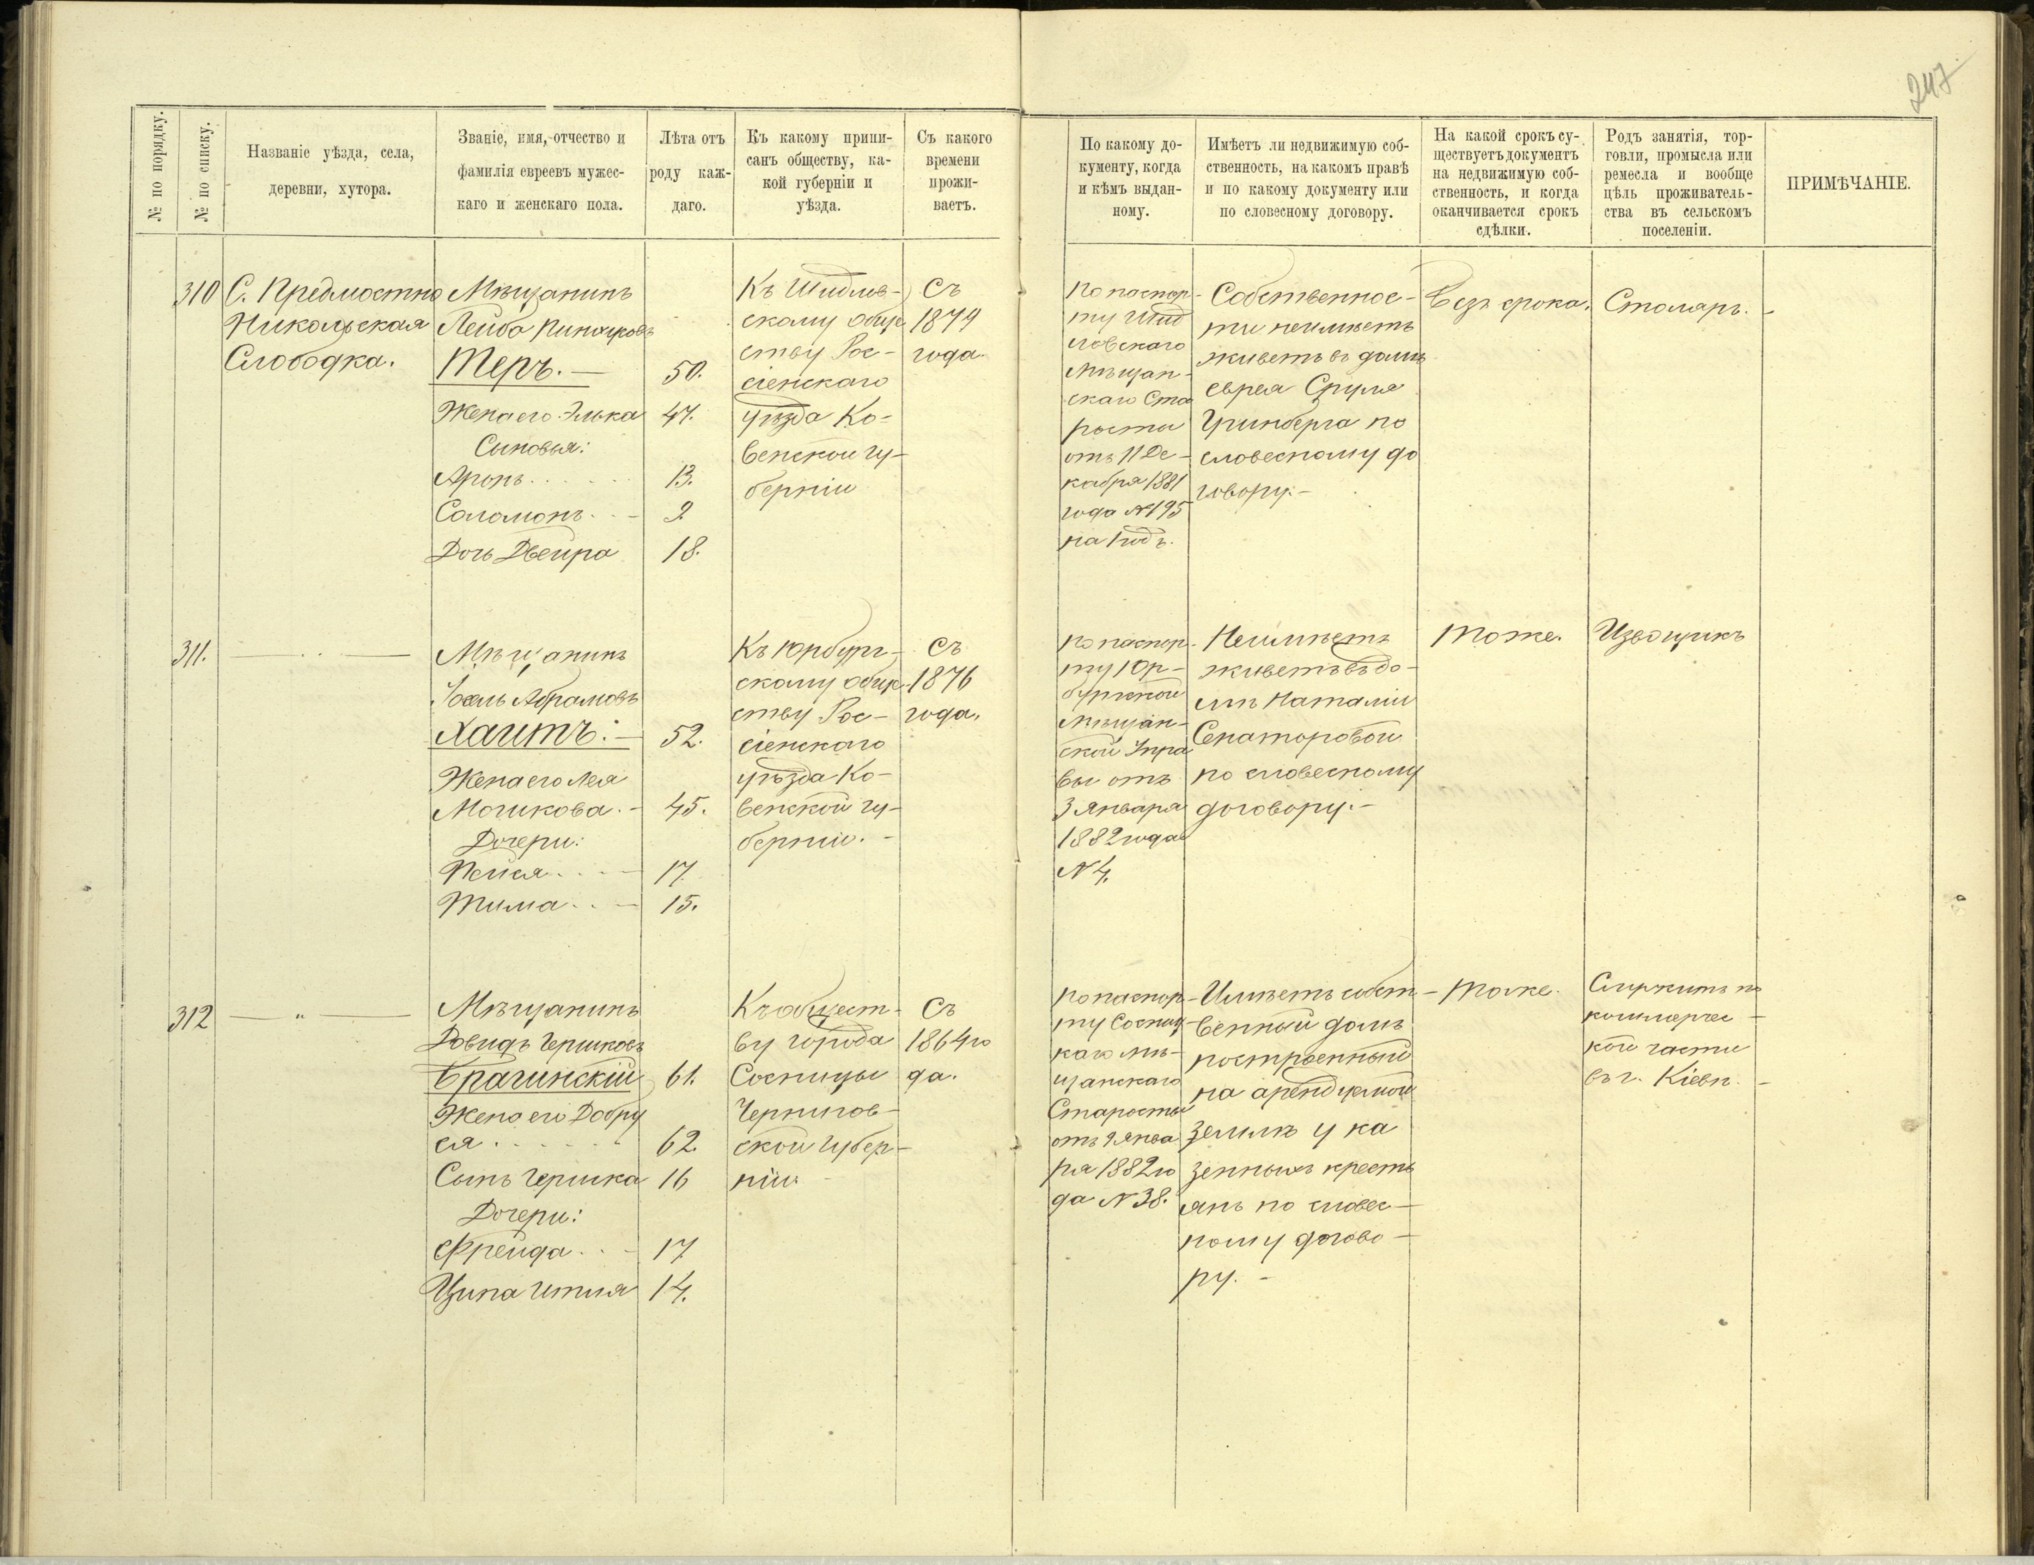 247
№ по порядку.
№ по списку.
Названіе уѣзда, села,
деревни, хутора.
Званіе, имя, отчество и
фамилія евреевъ мужес-
каго и женскаго пола.
Лѣта отъ
роду каж-
даго.
Къ какому припи-
санъ обществу, ка-
кой губерніи и
уѣзда.
Съ какого
времени
прожи-
ваетъ.
По какому до-
кументу, когда
и кѣмъ выдан-
ному.
Имѣетъ ли недвижимую соб-
ственность, на какомъ правѣ
и по какому документу или
по словесному договору.
На какой срокъ су-
ществуетъ документъ
на недвижимую соб-
ственность, и когда
оканчивается срокъ
сдѣлки.
Родъ занятія, тор-
говли, промысла или
ремесла и вообще
цѣль проживатель-
ства въ сельскомъ
поселеніи.
ПРИМѢЧАНІЕ.
310
С. Предмостно
Никольская
Слободка.
Мѣщанинъ
Лейба
Теръ. — 50.
Жена его Элька 47.
Сыновья:
Аронъ 13.
Соломонъ — 2
Дочь Двейра 18.
Къ Шидлов-
скому обще
ству Рос-
сіенскаго
уѣзда Ко-
венской гу-
берніи
Съ
1874
года.
По паспор-
ту Шид
ловскаго
мѣщан-
скаго Ста
росты
отъ 11 Де-
кабря 1881
года № 195
на годъ.
Собственнос-
ти неимѣетъ
живетъ въ домѣ
еврея Сруля
Гринберга по
словесному до
говору. —
Безъ срока.
Столяръ. -
311.
Мѣщанинъ
Абрамовъ
Хаитъ. — 52.
Жена его Лея
Мошкова. — 45.
Дочери:
Пейся — 17.
Тима — 15.
Къ Юрбург-
скому обще
ству Рос-
сіенскаго
уѣзда Ко-
венской гу-
берніи. -
Съ
1876
года.
По паспор-
ту Юр-
бургской
мѣщан-
ской Упра
вы отъ
3 Января
1882 года
№ 4.
Неимѣетъ
живетъ въ до-
мѣ Наталіи
Сенаторовой
по словесному
договору. —
Тоже.
Извощикъ
312
— " —
Мѣщанинъ
Довидъ Гершковъ
Брагинскій 61.
Жена его Добру
ся 62.
Сынъ Гершка 16
Дочери:
Фрейда — 17
Ципа Итля 14.
Къ общест-
ву города
Сосницы
Чернигов-
ской Губер-
ніи
Съ
1864 го
да.
По паспор-
ту Сосниц
каго мѣ-
щанскаго
Старосты
отъ 9 Янва
ря 1882 го
да № 38.
Имѣетъ собст-
венный домъ
построенный
на арендуемой
землѣ у ка
зенныхъ кресть
янъ по словес-
ному догово-
ру. -
Тоже.
Служитъ по
коммерчес-
кой части
въ г. Кіевѣ. -